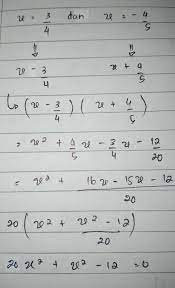 x = 3/4 dan x = -4/5
⇓ ⇓
x - 3/4 x + 4/5
↳ (x - 3/4) (x + 4/5)
= x² + 4/5 x - 3/4 x - 12/20
= x² + 16x - 15x - 12 / 20
20 (x² + x² - 12 / 20)
20 x² + x² - 12 = 0